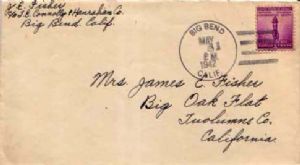 V.E. Fisher
c/o J.E. Connolly & Hanrahan Co.
Big Bend Calif.
BIG BEND
MAY
31
PM
1942
CALIF.
Mrs James E. Fisher
Big Oak Flat
Tuolumne Co.
California.